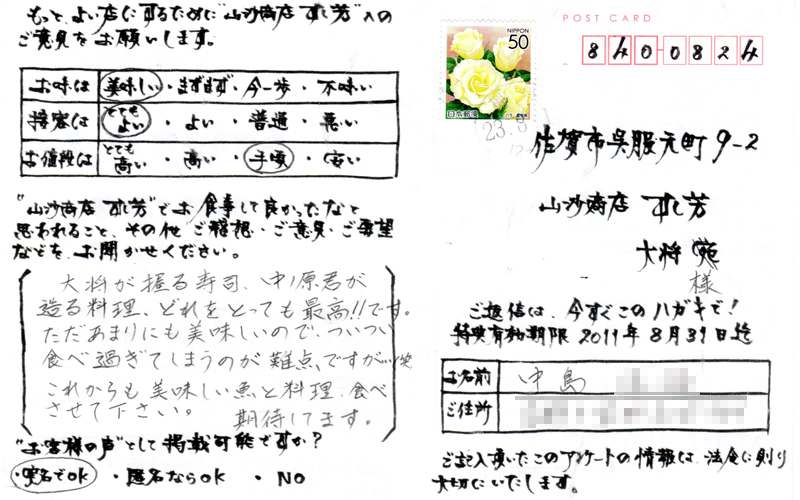 もっと、よい店にするために"山沙商店 すし芳"への
ご意見をお願いします。
お味は 美味しい・まずまず・今一歩・不味い
接客は とてもよい・よい・普通・悪い
お値段は とても高い・高い・手頃・安い
"山沙商店 すし芳"でお食事して良かったなと
思われること、その他ご感想・ご意見・ご要望
などを、お聞かせください。
大将が握る寿司、中ノ原君が
造る料理、どれをとっても最高!!です。
ただあまりにも美味しいので、ついつい
食べ過ぎてしまうのが難点、ですが…(笑)
これからも美味しい魚と料理、食べ
させて下さい。 期待してます。
"お客様の声"として掲載可能ですか?
・実名でOK ・匿名ならOK ・NO
NIPPON
50
日本郵便
23.8
POST CARD
840-0824
佐賀市呉服元町9-2
山沙商店 すし芳
大将 宛
様
ご返信は、今すぐこのハガキで!
特典有効期限 2011年8月31日迄
お名前 中島
ご住所
ご記入頂いたこのアンケートの情報は、法令に則り
大切にいたします。